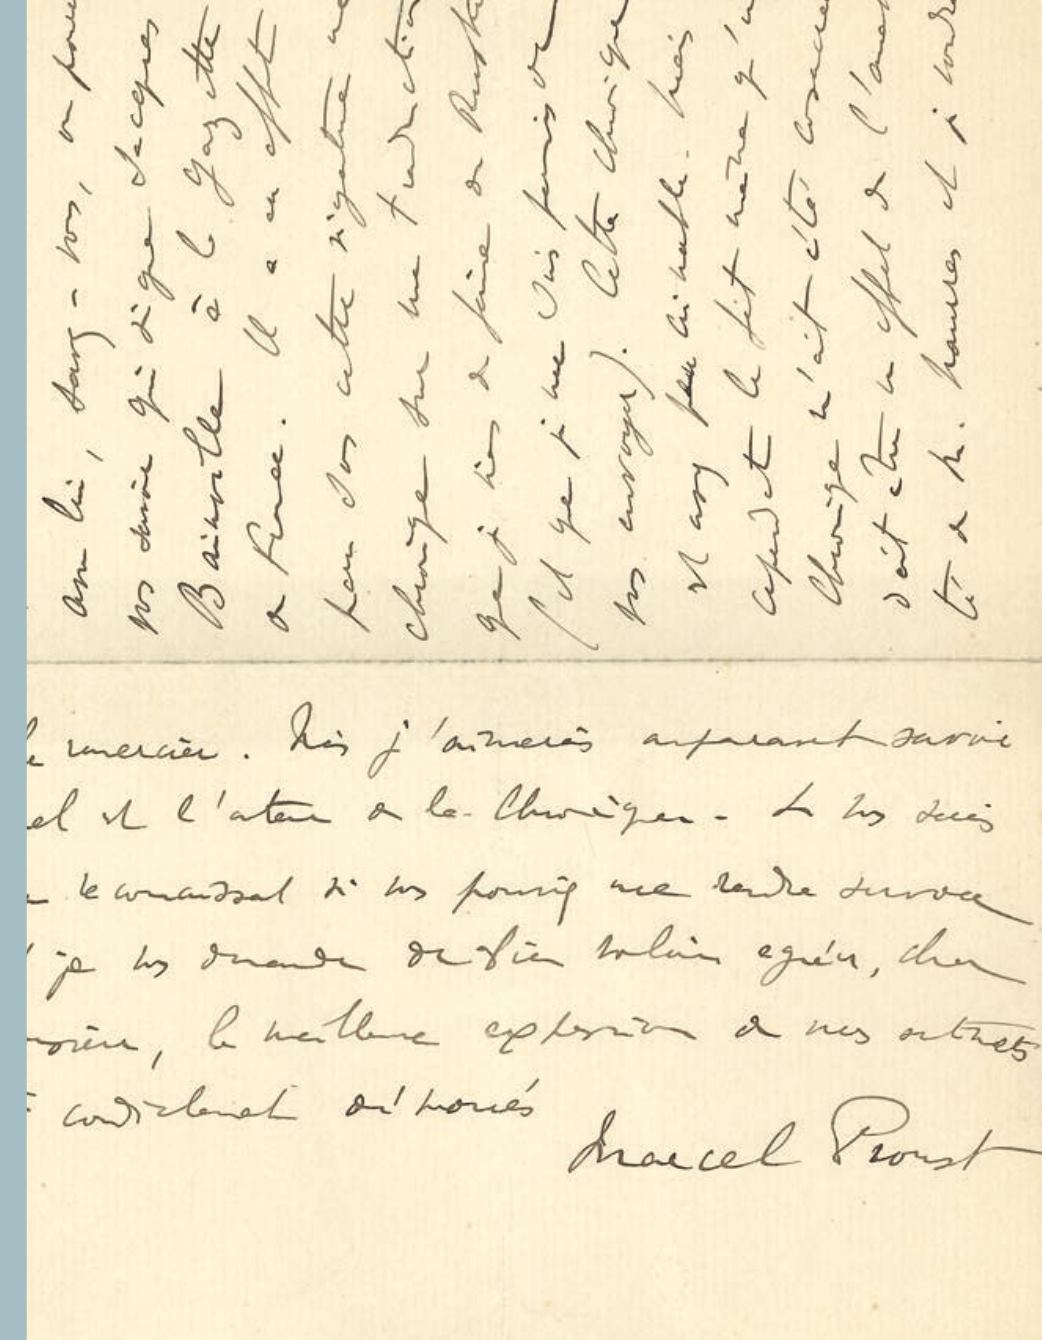 lui, savez-vous, ou pouv
vous savoir qui signe Jacques
Bainville à la Gazette
de France. Il a en effet
paru sous cette signature une
chronique sur une traduction
que je viens de faire de Ruskin
(et que je me suis permis de
vous envoyer). Cette chronique
est assez peu aimable. Mais
cependant le fait même qu'une
chronique m'ait été consacrée
doit être un effet de l'amab
té de M. et je voudra
le remercier. Mais j'aimerais auparavant savoir
el est l'auteur de la Chronique. Je vous serais
reconnaissant si vous pouviez me rendre service
je vous demande de bien vouloir agréer, cher
nsieur, la meilleure expression de mes sentiments
cordialement dévoués
Marcel Proust